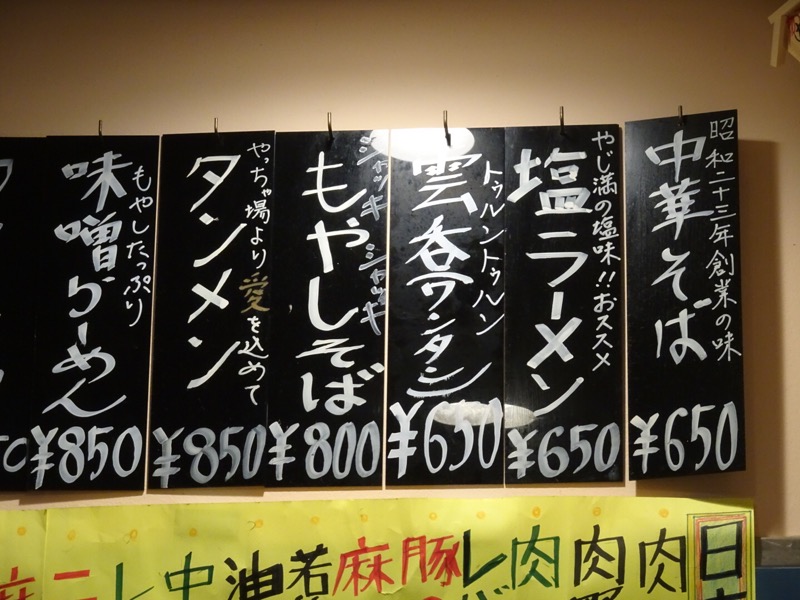 昭和二十三年創業の味
中華そば
¥650
やじ満の塩味!!おススメ
塩ラーメン
¥650
トゥルントゥルン
雲呑(ワンタン)
¥650
シャッキシャキ
もやしそば
¥800
やっちゃ場より愛を込めて
タンメン
¥850
もやしたっぷり
味噌らーめん
¥850
肉
肉
肉
レ
豚
麻
若
油
中
レ